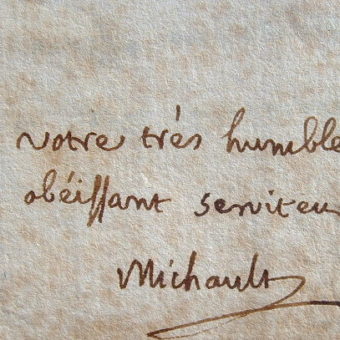 votre trés humble
obéiſſant serviteu
Michault